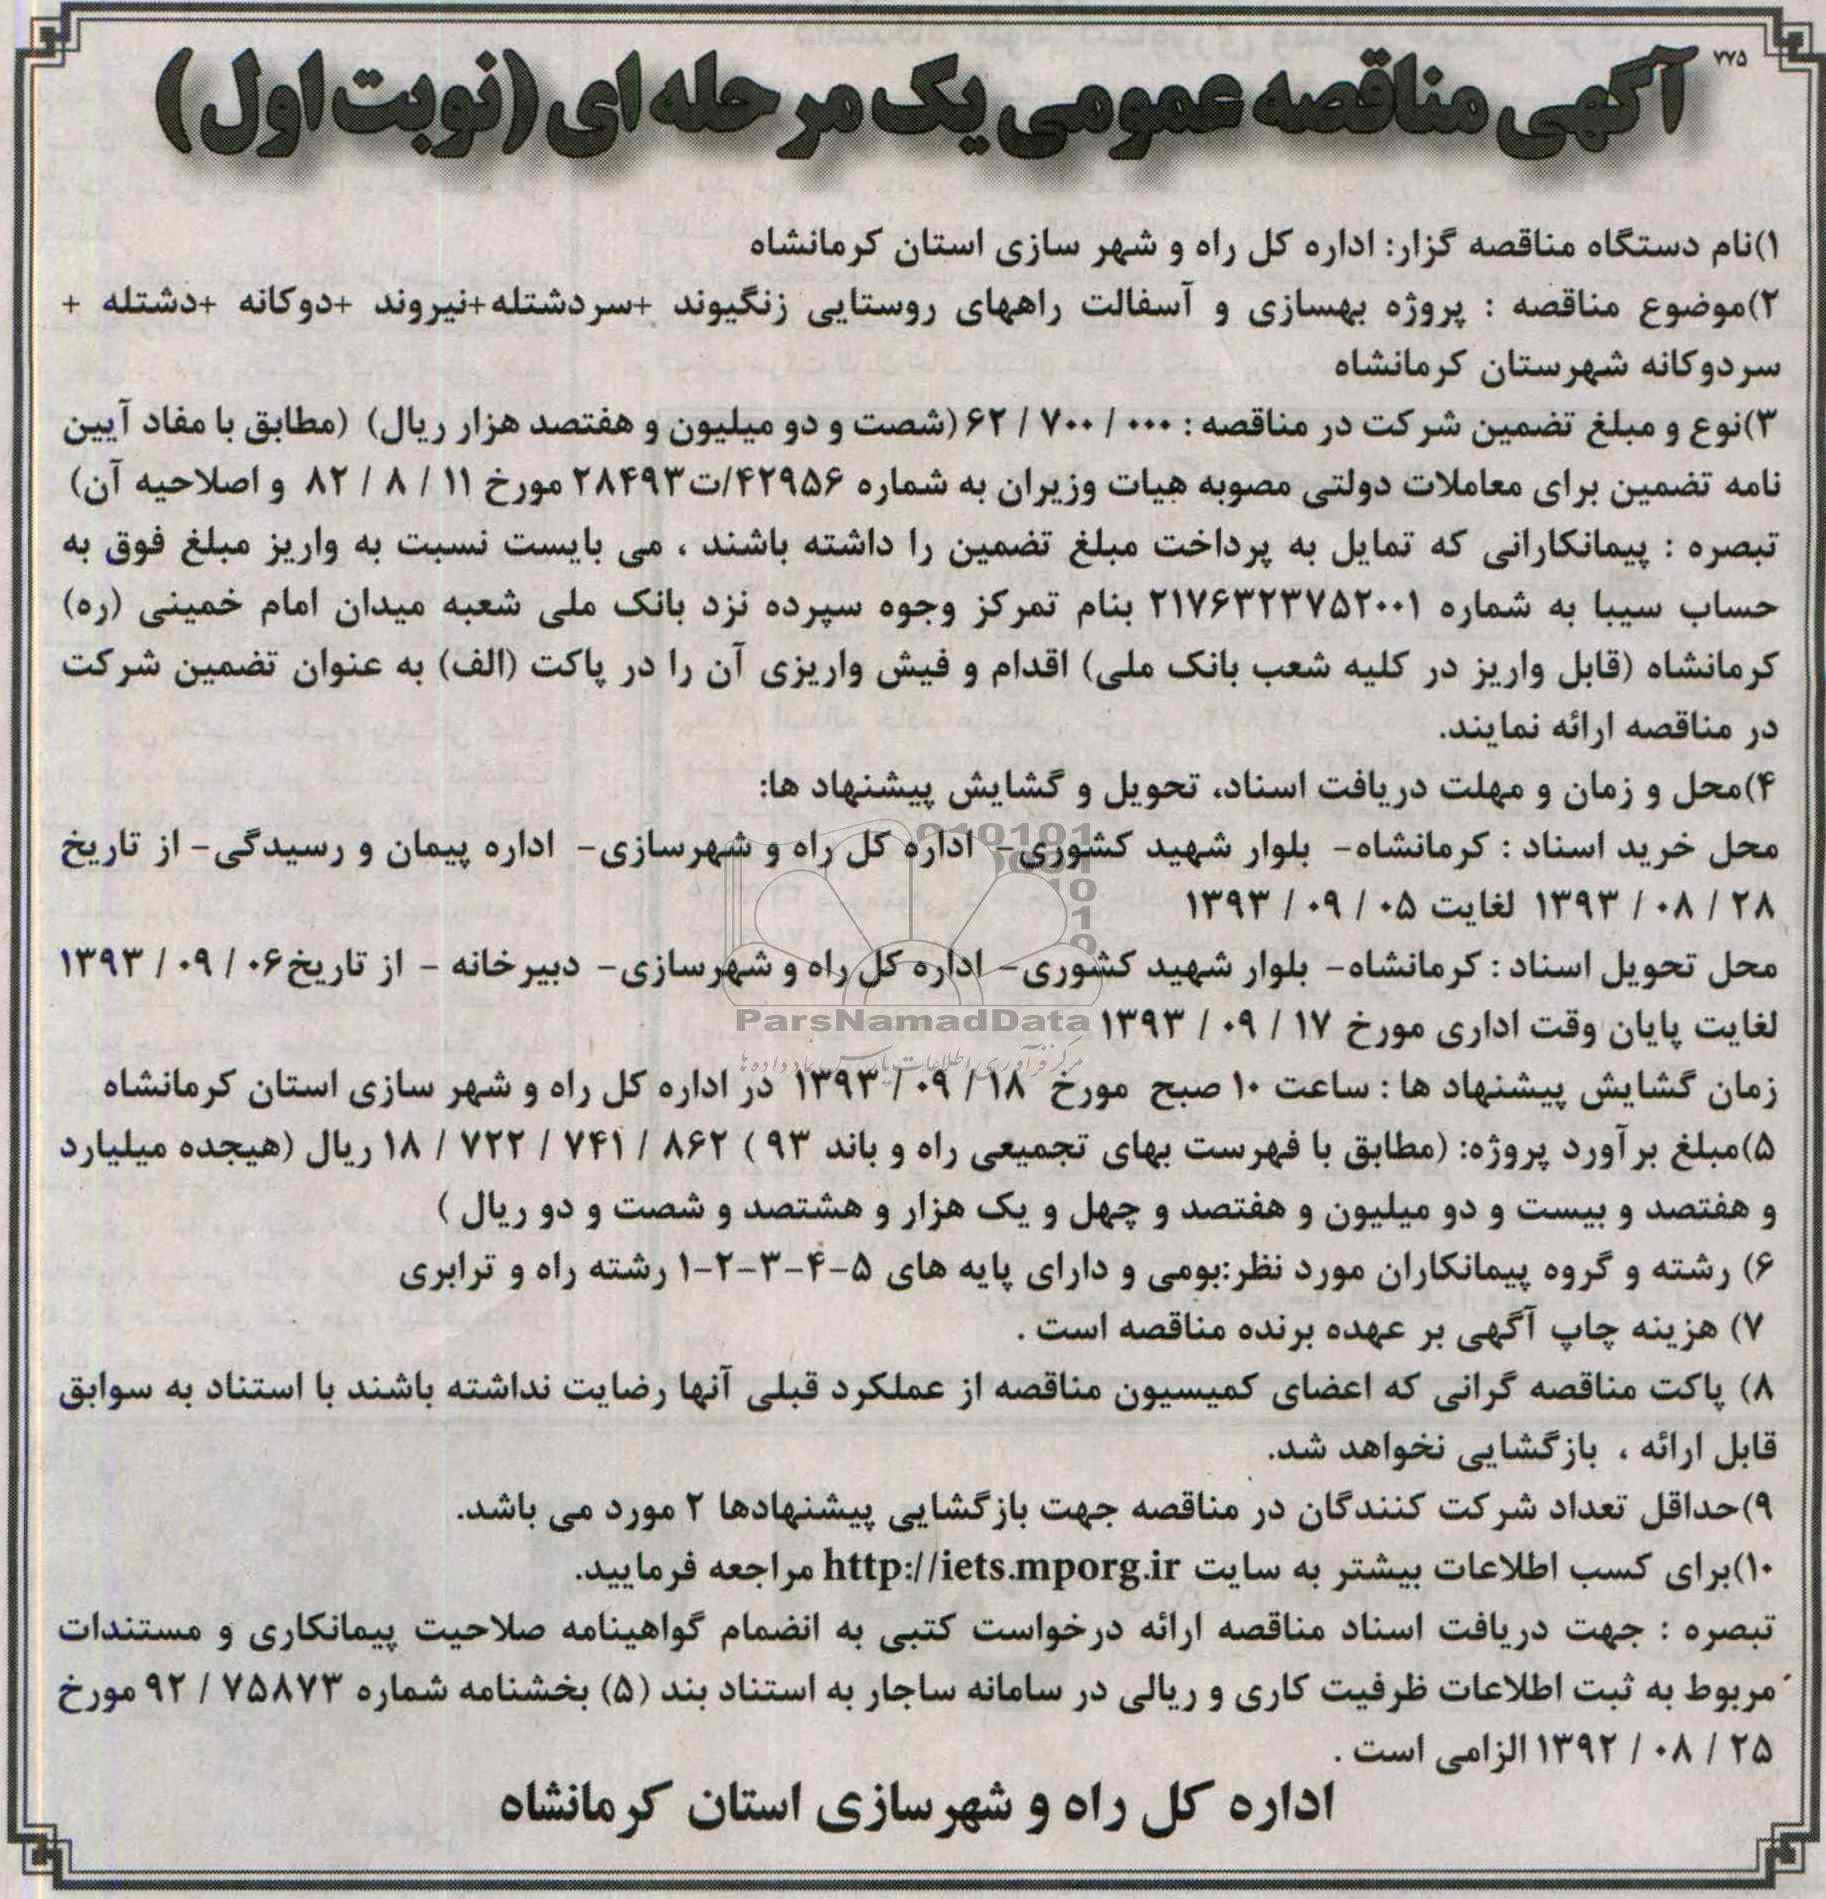 ۷۷۵
آگهی مناقصه عمومی یک مرحله ای (نوبت اول)
۱)نام دستگاه مناقصه گزار: اداره کل راه و شهر سازی استان کرمانشاه
۲)موضوع مناقصه : پروژه بهسازی و آسفالت راههای روستایی زنگیوند +سردشتله+نیروند +دوکانه +دشتله +
سردوکانه شهرستان کرمانشاه
۳)نوع و مبلغ تضمین شرکت در مناقصه : ۰۰۰ / ۷۰۰ / ۶۲ (شصت و دو میلیون و هفتصد هزار ریال) (مطابق با مفاد آیین
نامه تضمین برای معاملات دولتی مصوبه هیات وزیران به شماره ۴۲۹۵۶/ت۲۸۴۹۳ مورخ ۱۱ / ۸ / ۸۲ و اصلاحیه آن)
تبصره : پیمانکارانی که تمایل به پرداخت مبلغ تضمین را داشته باشند ، می بایست نسبت به واریز مبلغ فوق به
حساب سیبا به شماره ۲۱۷۶۳۲۳۷۵۲۰۰۱ بنام تمرکز وجوه سپرده نزد بانک ملی شعبه میدان امام خمینی (ره)
کرمانشاه (قابل واریز در کلیه شعب بانک ملی) اقدام و فیش واریزی آن را در پاکت (الف) به عنوان تضمین شرکت
در مناقصه ارائه نمایند.
۴)محل و زمان و مهلت دریافت اسناد، تحویل و گشایش پیشنهاد ها:
محل خرید اسناد : کرمانشاه- بلوار شهید کشوری- اداره کل راه و شهرسازی- اداره پیمان و رسیدگی- از تاریخ
۲۸ / ۰۸ / ۱۳۹۳ لغایت ۰۵ / ۰۹ / ۱۳۹۳
محل تحویل اسناد : کرمانشاه- بلوار شهید کشوری- اداره کل راه و شهرسازی- دبیرخانه - از تاریخ۰۶ / ۰۹ / ۱۳۹۳
لغایت پایان وقت اداری مورخ ۱۷ / ۰۹ / ۱۳۹۳
ParsNamadData
مرکز فرآوری اطلاعات پارس نماد داده ها
زمان گشایش پیشنهاد ها : ساعت ۱۰ صبح مورخ ۱۸ / ۰۹ / ۱۳۹۳ در اداره کل راه و شهر سازی استان کرمانشاه
۵)مبلغ برآورد پروژه: (مطابق با فهرست بهای تجمیعی راه و باند ۹۳ ) ۸۶۲ / ۷۴۱ / ۷۲۲ / ۱۸ ریال (هیجده میلیارد
و هفتصد و بیست و دو میلیون و هفتصد و چهل و یک هزار و هشتصد و شصت و دو ریال )
۶) رشته و گروه پیمانکاران مورد نظر:بومی و دارای پایه های ۵-۴-۳-۲-۱ رشته راه و ترابری
۷) هزینه چاپ آگهی بر عهده برنده مناقصه است .
۸) پاکت مناقصه گرانی که اعضای کمیسیون مناقصه از عملکرد قبلی آنها رضایت نداشته باشند با استناد به سوابق
قابل ارائه ، بازگشایی نخواهد شد.
۹)حداقل تعداد شرکت کنندگان در مناقصه جهت بازگشایی پیشنهادها ۲ مورد می باشد.
۱۰)برای کسب اطلاعات بیشتر به سایت http://iets.mporg.ir مراجعه فرمایید.
تبصره : جهت دریافت اسناد مناقصه ارائه درخواست کتبی به انضمام گواهینامه صلاحیت پیمانکاری و مستندات
مربوط به ثبت اطلاعات ظرفیت کاری و ریالی در سامانه ساجار به استناد بند (۵) بخشنامه شماره ۷۵۸۷۳ / ۹۲ مورخ
۲۵ / ۰۸ / ۱۳۹۲ الزامی است .
اداره کل راه و شهرسازی استان کرمانشاه